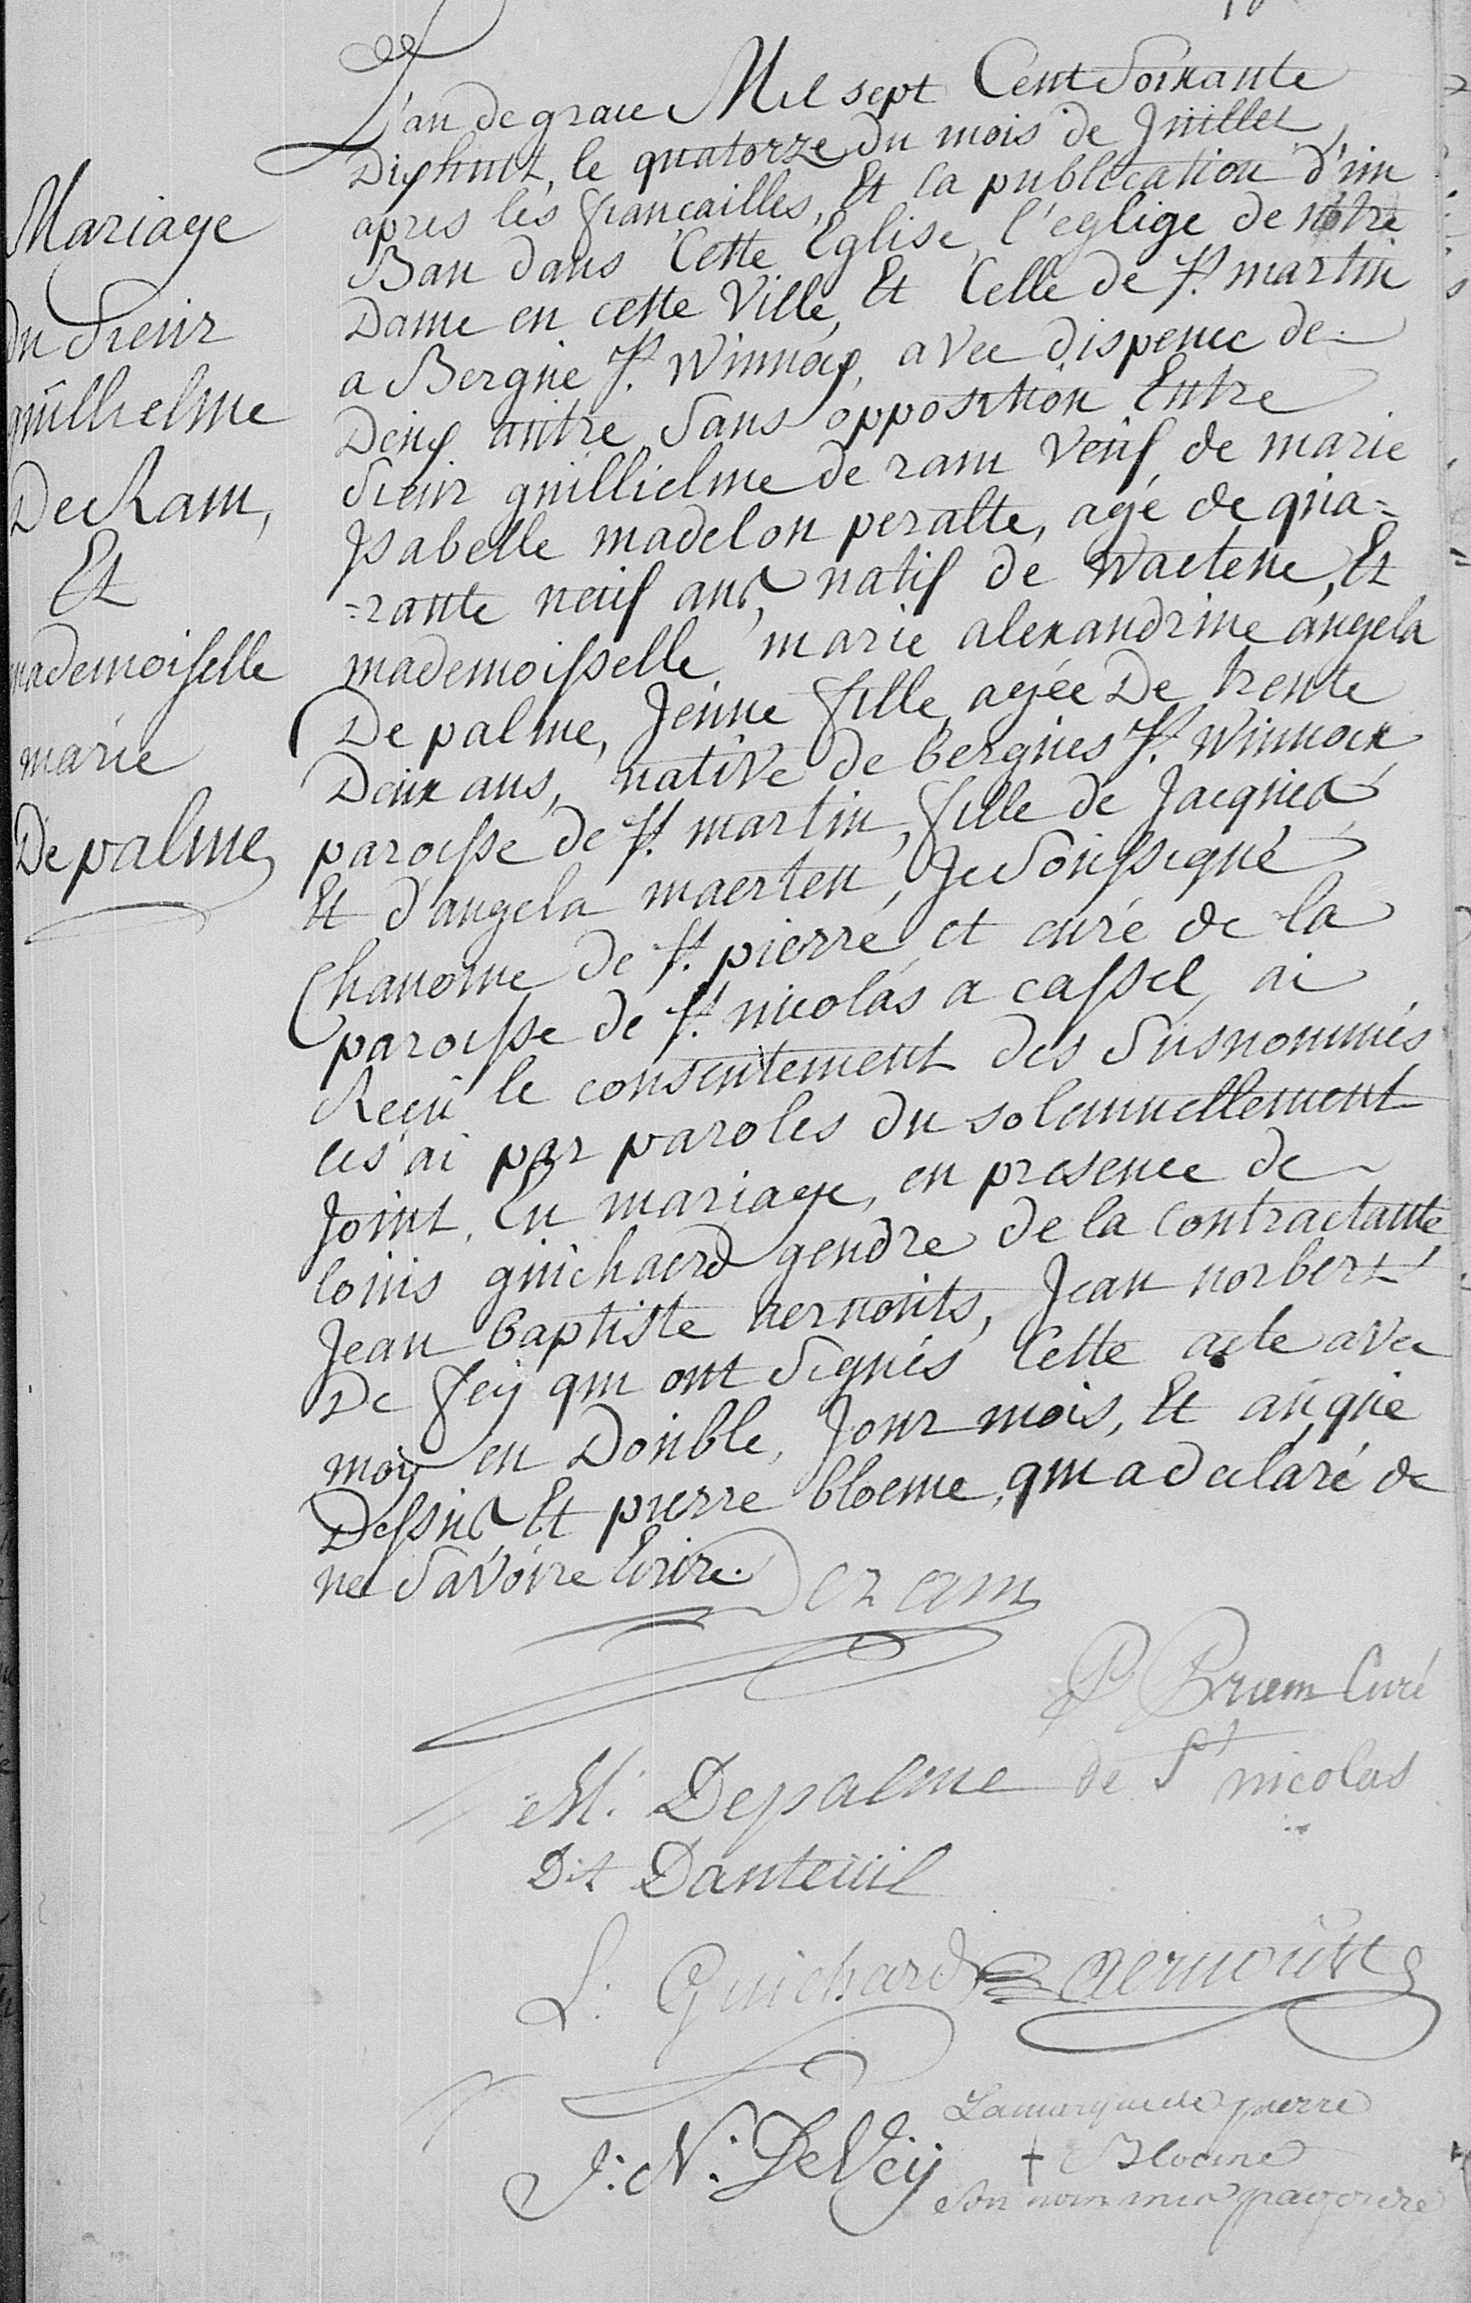 Mariage
Du Sieur
guillielme
De Ram,
Et
mademoiselle
marie
De palme
L'an de grace Mil sept Cent Soixante
Dixhuit, le quatorze du mois de Juillet,
apres les françailles, Et la publication d'un
Ban dans Cette Eglise, l'eglige de nôtre
Dame en cette Ville, Et Celle de St. martin
a Bergue St. Winnocq, avec dispence de
Deux autre Sans opposition Entre
Sieur guillielme de ram Veuf de marie
Isabelle madelon peralte, agé de qua=
=rante neuf ans, natif de Waetene, Et
mademoisselle marie alexandrine angela
De palme, Jeune fille, agée De trente
Deux ans, native de bergues St. Winnock
paroisse de St. martin, fille de Jacques
Et d'angela maerten, Je Soussigné
Chanoine de St. pierre et curé de la
paroisse de St. nicolas a cassel, ai
Reçu le consentement des Susnommés
les ai par paroles du solemnellement
Joint En mariage, en presence de
louis guichaerd gendre de la contractante
Jean baptiste aernouts, Jean norbert
De fey qui ont Signés Cette acte avec
moy en Double, Jour mois, Et an que
Dessus Et pierre bloeme, qui a declaré de
ne Savoire Ecrire. Deram
P Bruem Curé
de St nicolas
M. Depalme
Dit Danteuil
L. Guichard aernouts
J: N: DeVeij
La marque de pierre
+ Blocme